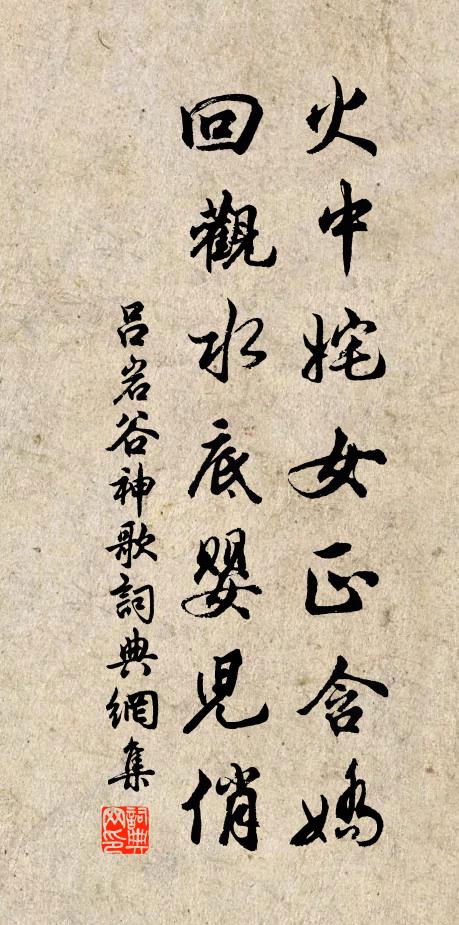 火中姹女正含嬌
回觀水底嬰兒俏
吕岩谷神歌詞典網集
詞典網印